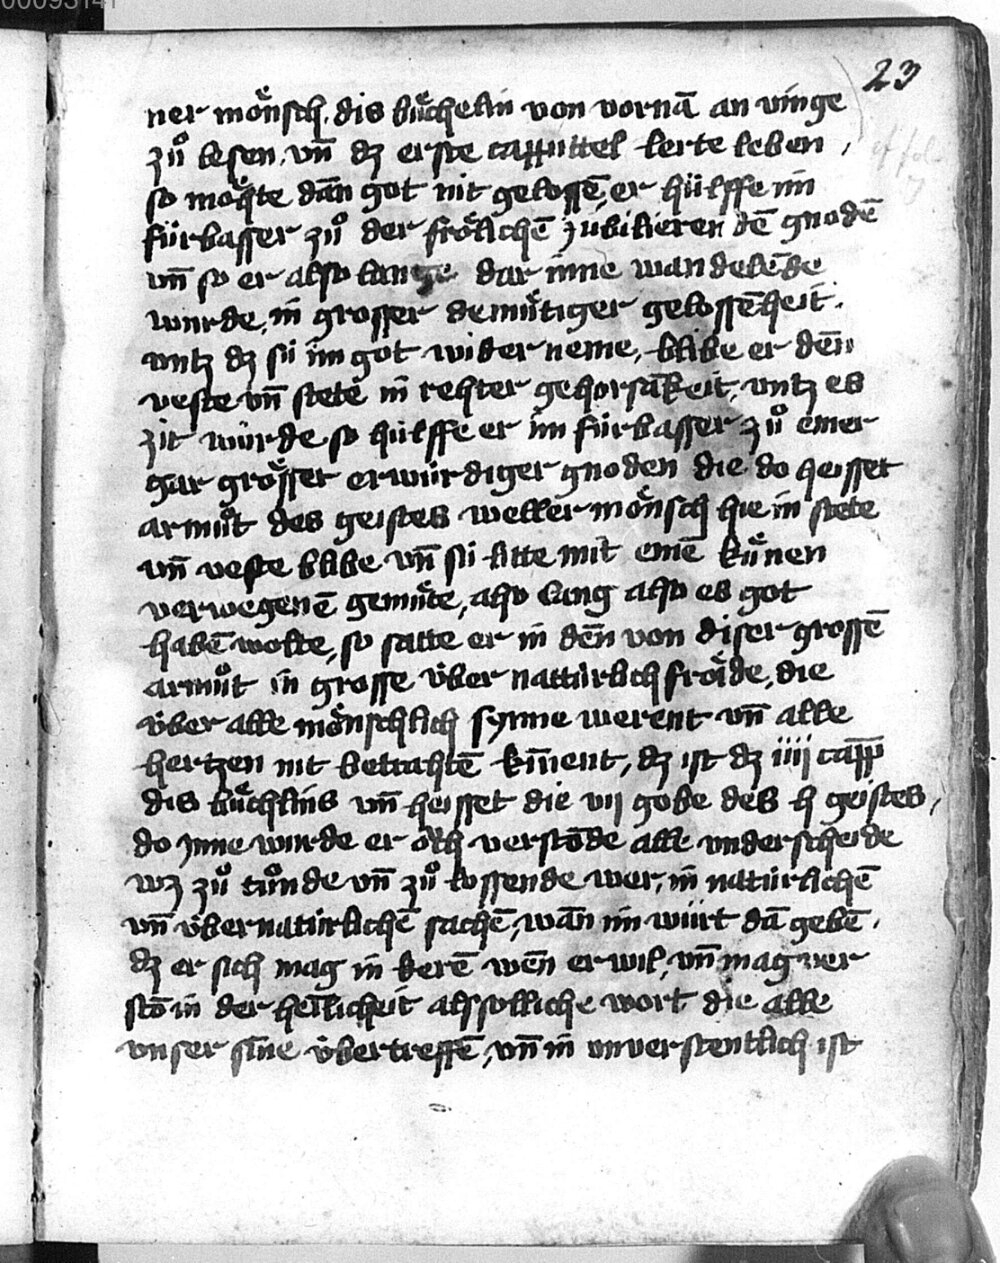 00093141
23
ner mönsch, dis bůchelin von vornā an vinge
zů lesen, vn̄ dz erste cappittel lerte leben,
so möhte dān got nit gelossē, er hülffe im
fürbasser zů der frölichē jubilierendē gnodē
vn̄ so er also lange dar inne wandelēde
wurde, in grosser demütiger gelossēheit.
vntz dz sü im got wider neme, blibe er dēn
veste vn̄ stete in rehter gehorsākeit, vntz es
zit würde so hülffe er im fürbasser zů einer
gar grösser erwürdiger gnoden die do heisset
armůt des geistes weller mönsch hie in stete
vn̄ veste blibe vn̄ sü litte mit einē kůnen
verwegenē gemüte, also lang also es got
habē wolte, so satte er in dēn von diser grossē
armůt in grosse über nattürlich fröide, die
über alle mönschlich synne werent vn̄ alle
hertzen nit betrahtē kūnent, dz ist dz iiij capp̄
dis bůchlins vn̄ heisset die vij gobe des h geistes,
do jnne wurde er öch verstōde alle vnderscheide
wz zů tůnde vn̄ zů lossende wer, in natürlichē
vn̄ übernatürlichē sachē, wān im würt dā gebē,
dz er sich mag in kerē wēn er wil, vn̄ mag ver
stō in der heīlicheit alsolliche wort die alle
vnser sīne übertreffē, vn̄ in vnverstentlich ist